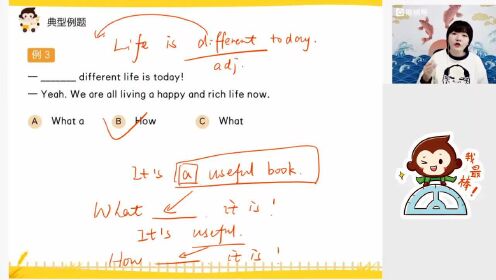 典型例题
Life is different today.
adj.
例 3
— _______ different life is today!
— Yeah. We are all living a happy and rich life now.
A What a B How C What
It's a useful book.
What ______ it is!
It's useful.
How ______ it is!
我最棒!